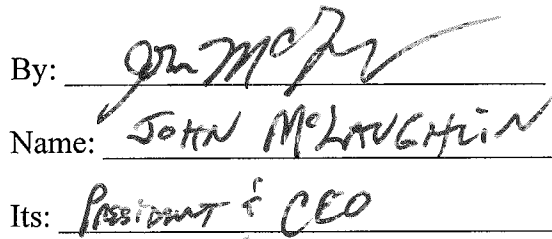 By: John Mc
Name: JOHN McLAUGHLIN
Its: PRESIDENT & CEO